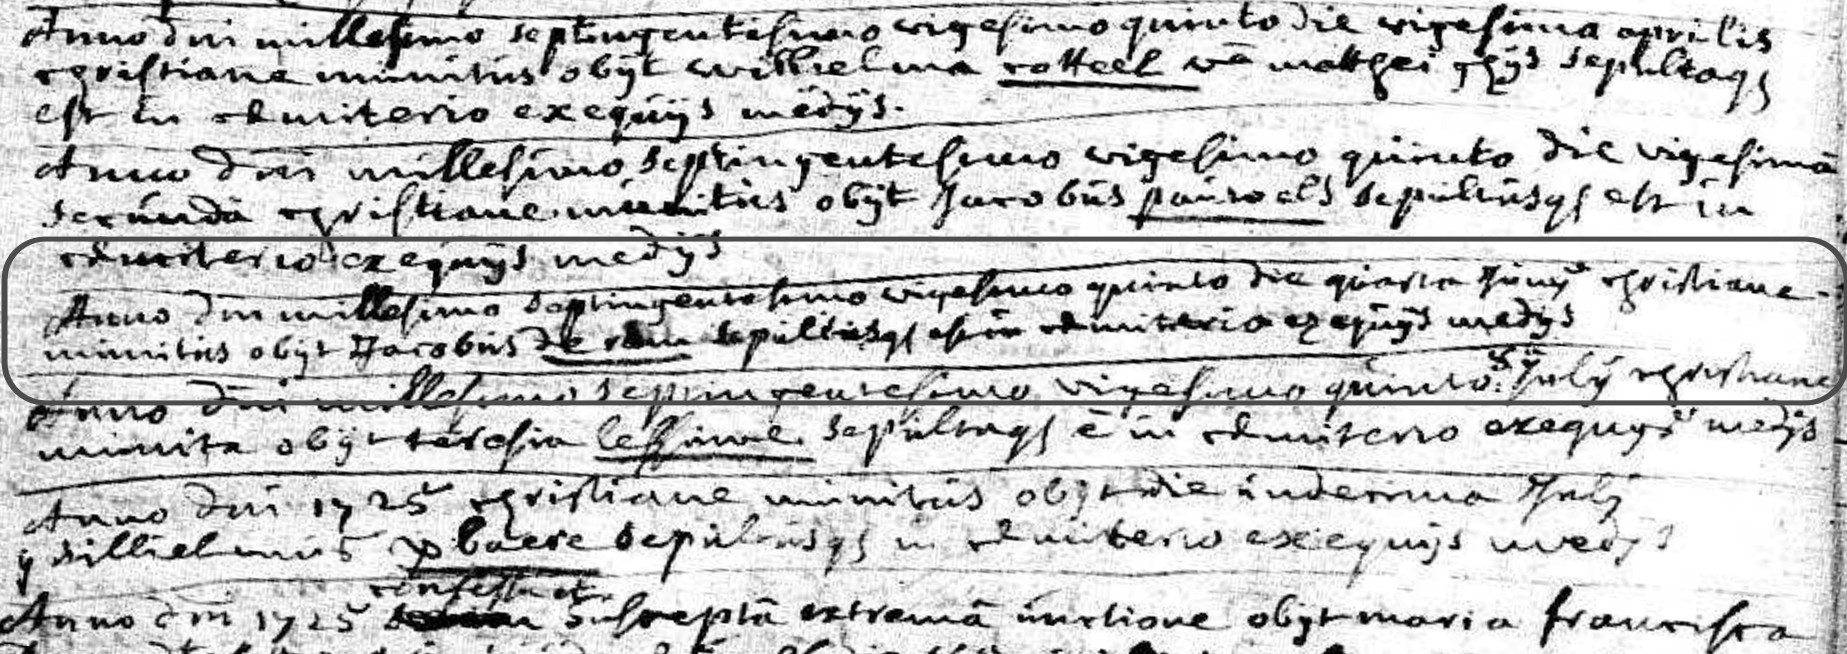 Anno dni millesimo septingentesimo vigesimo quinto die vigesima aprilis
christiane munitus obijt wilhelma cotteel va matthei ghijs sepultaqs
est in cemiterio exequijs medijs.
Anno dni millesimo septingentesimo vigesimo quinto die vigesima
secunda christiane munitus obijt Jacobus pauwels sepultusqs est in
cemiterio exequijs medijs
Anno dni millesimo septingentesimo vigesimo quinto die quarta Junij christiane
munitus obijt Jacobus de sepultusqs est in cemiterio exequijs medijs
Anno dni millesimo septingentesimo vigesimo quinto July christiane
munita obijt teresia sepultaqs e in cemiterio exequijs medijs
Anno dni 1725 christiane munitus obijt die undecima July
baere sepultusqs in cemiterio exequijs medijs
Anno dni 1725 suscepta extrema unctione obijt maria francisca